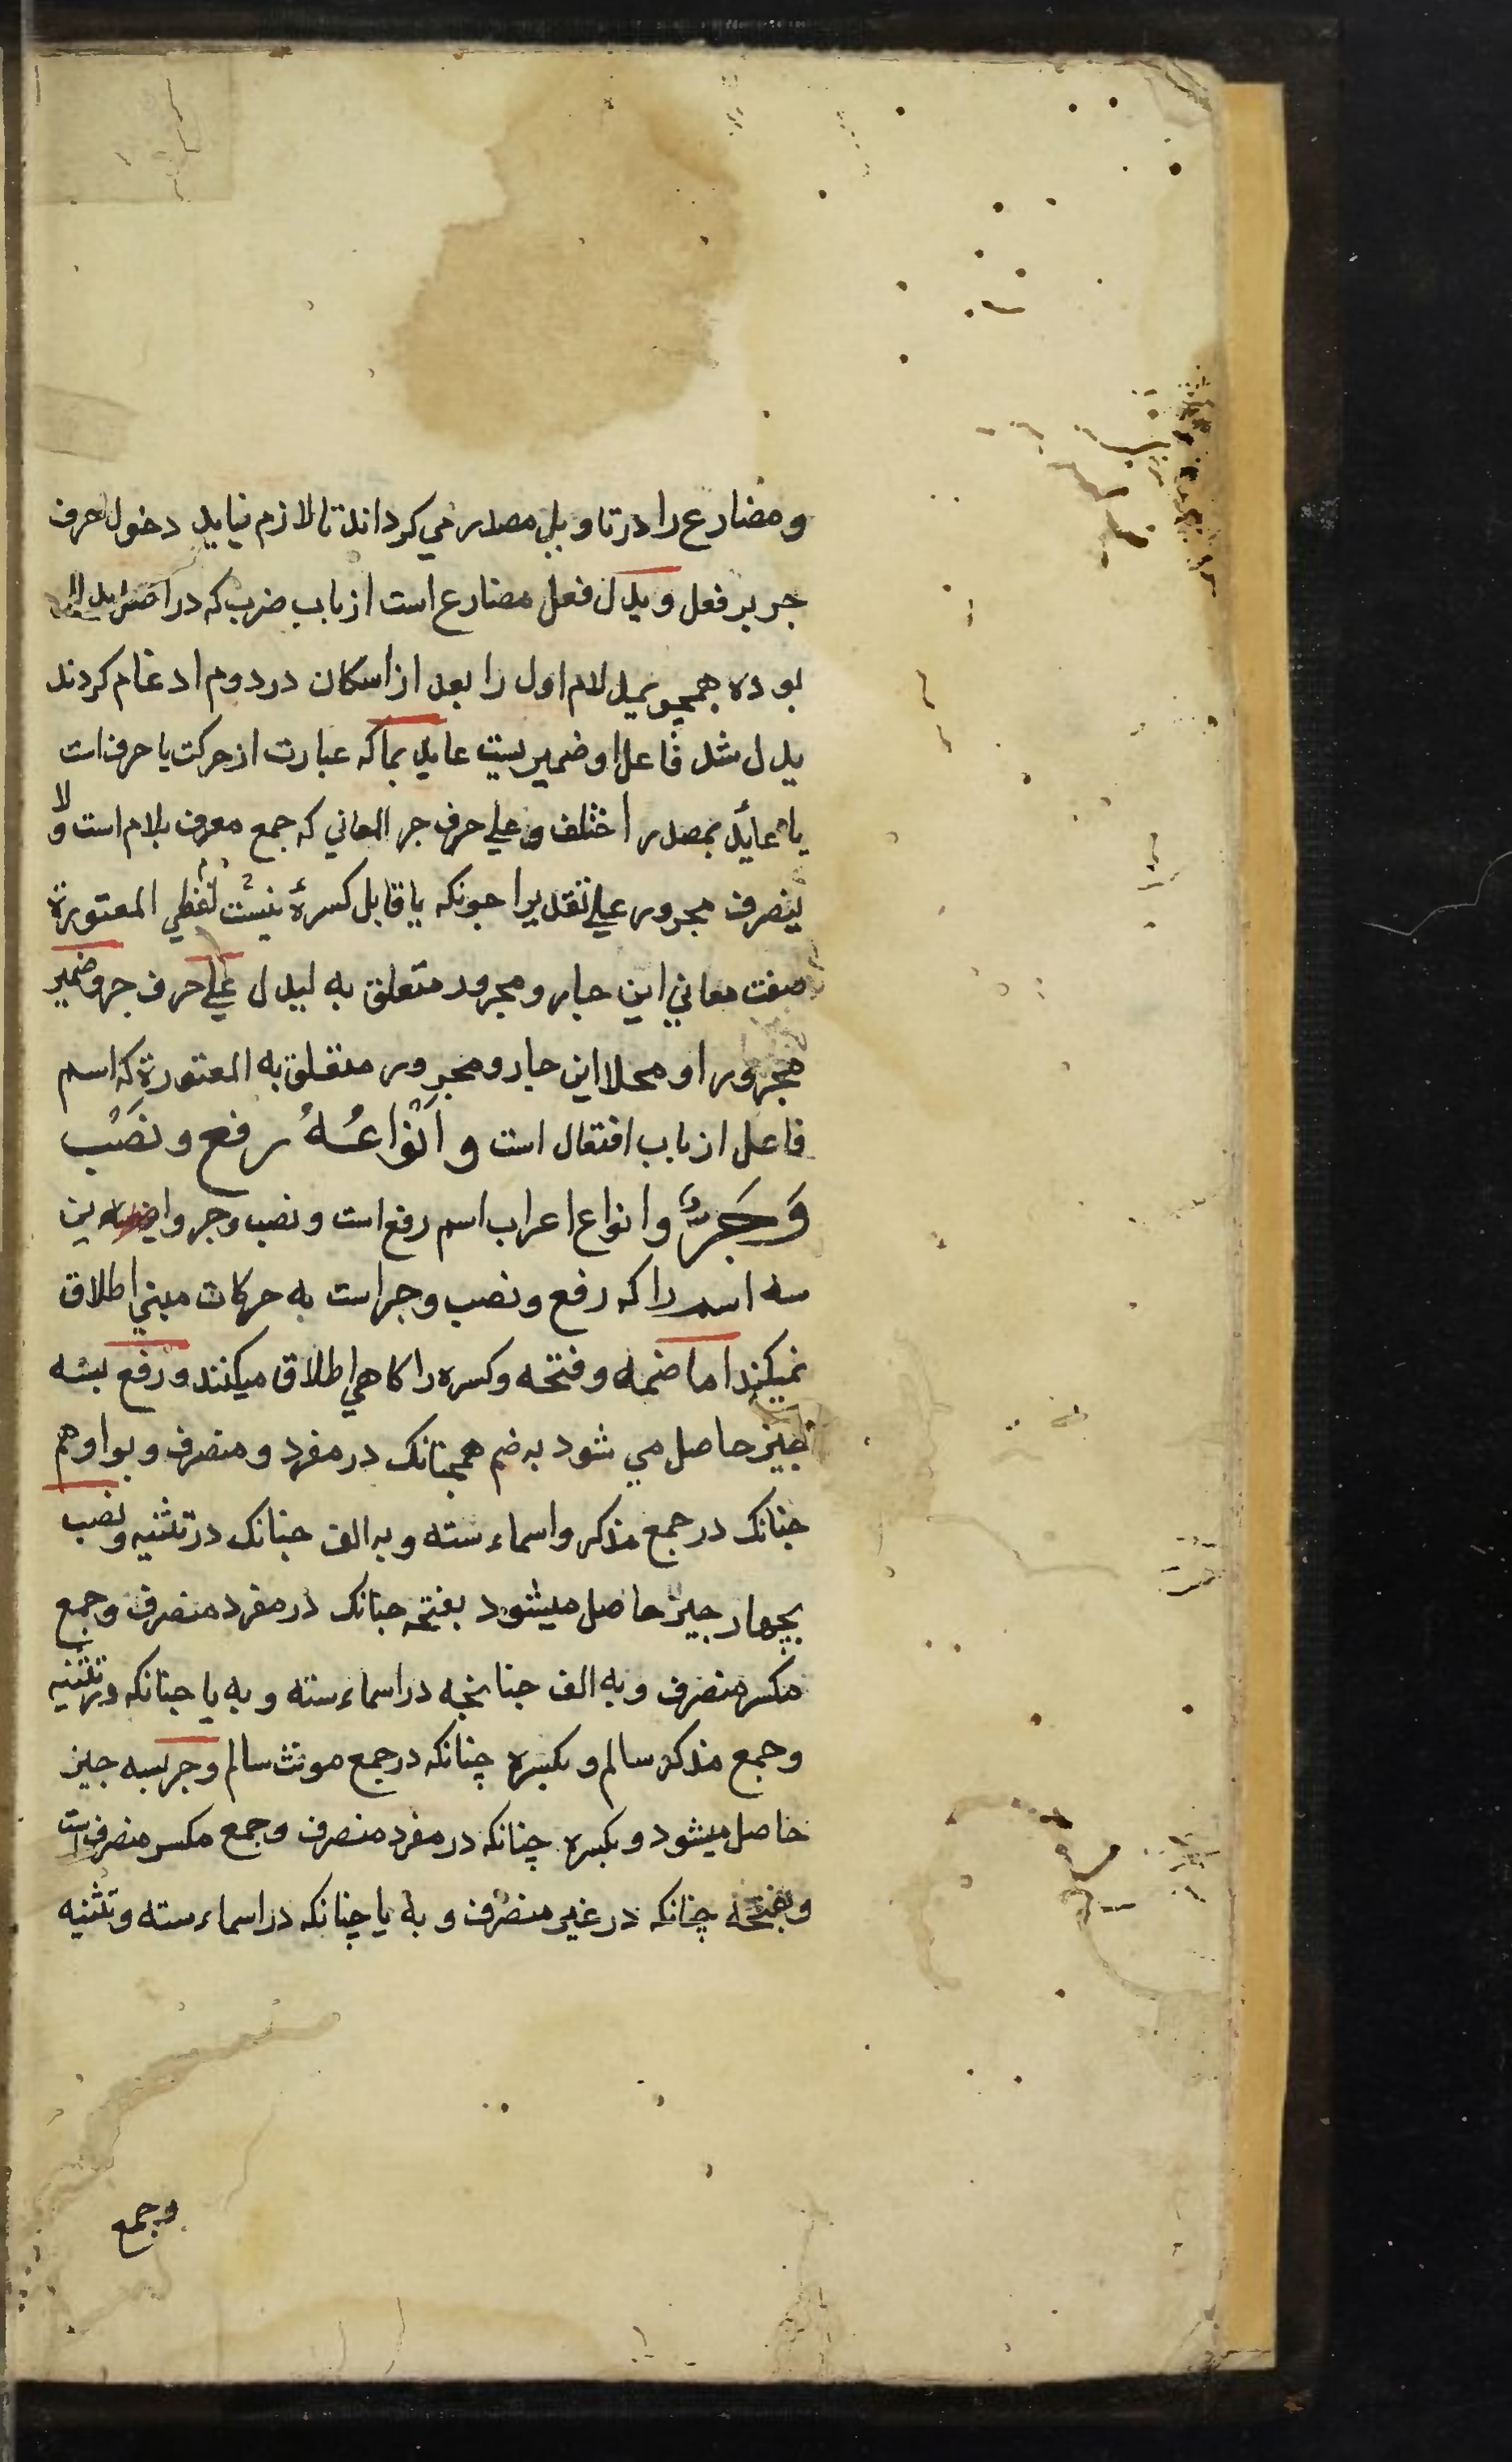 ومضارع را در تاویل مصدر می کرداند تا لازم نیاید دخول حرف
جر بر فعل و یدل فعل مضارع است از باب ضرب که در اصل یدلل
بوده همچو یمیل لام اول را بعد از اسکان در دوم ادغام کردند
یدل شد فاعل او ضمیریست عاید بما که عبارت از حرکت یا حرف است
یا عائد بمصدر اختلف و علی حرف جر المعانی که جمع معرف بلام است ولا
ینصرف مجرور علی تقدیرا جونکه یا قابل کسرهٔ نیست لفظی المعتورة
صفت معانی این جار و مجرور متعلق به لیدل علی حرف جر وضمیر
مجرور او محلا این جار و مجرور متعلق به المعتورة که اسم
فاعل از باب افتعال است و اَنْوَاعُـهُ رفع و نَصْب
وَجَـرٌّ و انواع اعراب اسم رفع است و نصب و جر و این
سه اسم را که رفع و نصب و جر است به حرکات مبنی اطلاق
نمیکند اما ضمه و فتحه و کسره را کاهی اطلاق میکنند و رفع بسه
جیز حاصل می شود به ضم همجنانک در مفرد و منصرف و بواو هم
جنانک در جمع مذکر و اسماء سته و به الف جنانک در تثنیه و نصب
بچهار جیز حاصل میشود بفتحه جنانک در مفرد منصرف و جمع
مکسر منصرف و به الف جنانجه در اسماء سته و به یا جنانکه در تثنیه
و جمع مذکر سالم و بکسره چنانکه در جمع مونث سالم و جر بسه جیز
حاصل میشود و بکسره چنانکه در مفرد منصرف و جمع مکسر منصرف است
و بفتحه چنانکه در غیر منصرف و به یا چنانکه در اسماء سته و تثنیه
وجمع